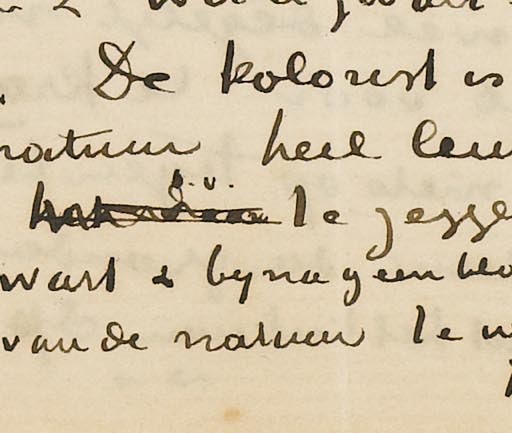 De kolorist is
natuur heel leu
te zegge
wart & byna geen bla
van de natuur te w